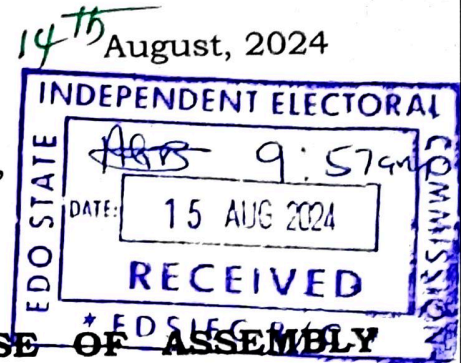 14th August, 2024
INDEPENDENT ELECTORAL
COMMISSION
EDO STATE
9:57am
DATE:
15 AUG 2024
RECEIVED
* EDSIEC
SE OF ASSEMBLY